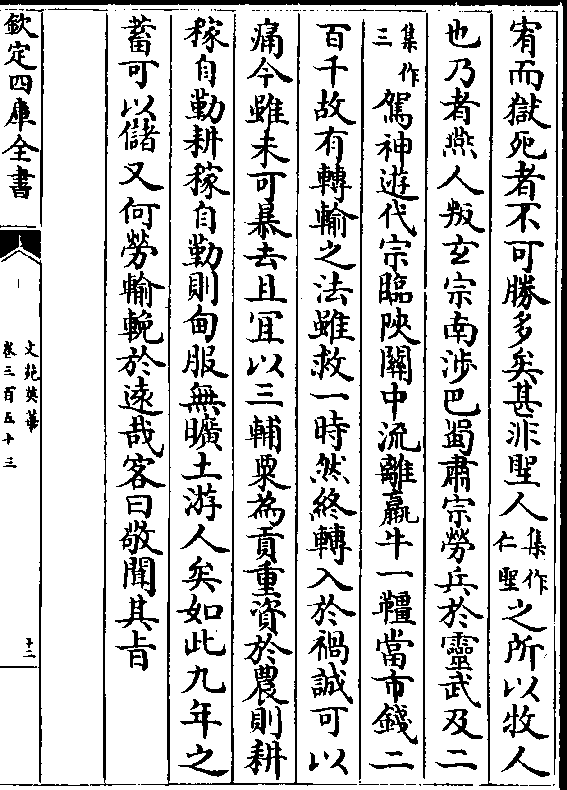 宥而獄死者不可勝多矣甚非聖人集作仁聖之所以牧人
也乃者燕人叛玄宗南涉巴蜀肅宗勞兵於靈武及二
集作三駕神遊代宗臨陜關中流離羸牛一韁當市錢二
百千故有轉輸之法雖救一時然終轉入於禍誠可以
痛今雖未可暴去且宜以三輔粟為貢重資於農則耕
稼自勤耕稼自勤則甸服無曠土游人矣如此九年之
蓄可以儲又何勞輸輓於遠哉客曰敬聞其㫖
欽定四庫全書
文苑英華
卷三百五十三
十二